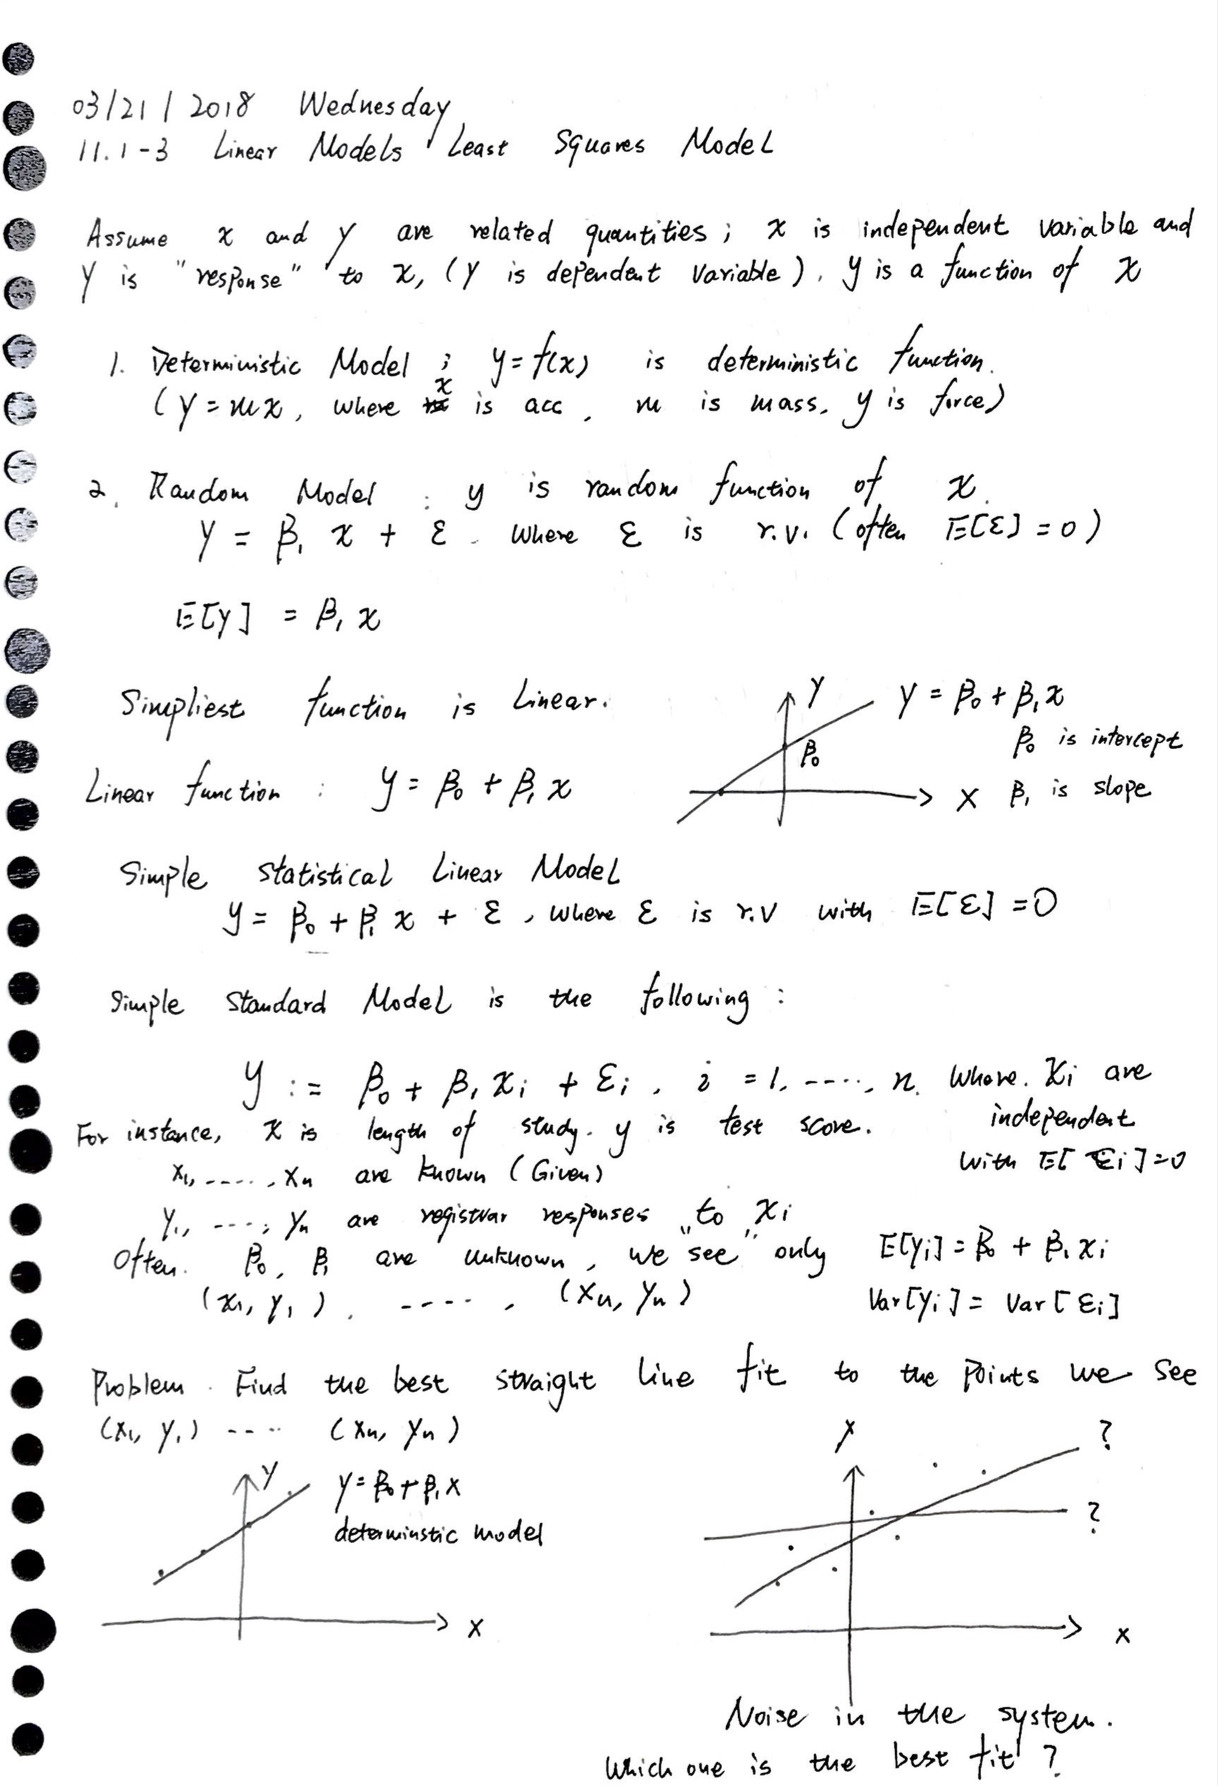 03/21/2018 Wednesday
11.1-3 Linear Models, Least Squares Model
Assume x and y are related quantities; x is independent variable and
y is "response" to x, (y is dependent variable). y is a function of x
1. Deterministic Model; y=f(x) is deterministic function.
(y=mx, where x is acc, m is mass, y is force)
2. Random Model: y is random function of x.
y = β₁ x + ε. where ε is r.v. (often E[ε]=0)
E[y] = β₁ x
Simpliest function is Linear.
Y
y = β₀ + β₁x
β₀
β₀ is intercept
Linear function: y = β₀ + β₁ x
X
β₁ is slope
Simple Statistical Linear Model
y = β₀ + β₁ x + ε, where ε is r.v with E[ε]=0
Simple Standard Model is the following:
y := β₀ + β₁ xi + εi, i = 1, ....., n. Where. Xi are
independent
with E[εi]=0
For instance, x is length of study. y is test score.
x₁, ....., xn are known (Given)
y₁, ....., yn are registrar responses to xi
Often. β₀, β₁ are unknown, we "see" only
(x₁, y₁), ....., (xn, yn)
E[yi] = β₀ + β₁ xi
Var[yi] = Var[εi]
Problem. Find the best straight line fit to the points we see
(x₁, y₁) ..... (xn, yn)
Y
y=β₀+β₁x
determinstic model
X
Y
?
?
X
Noise in the system.
Which one is the best fit?